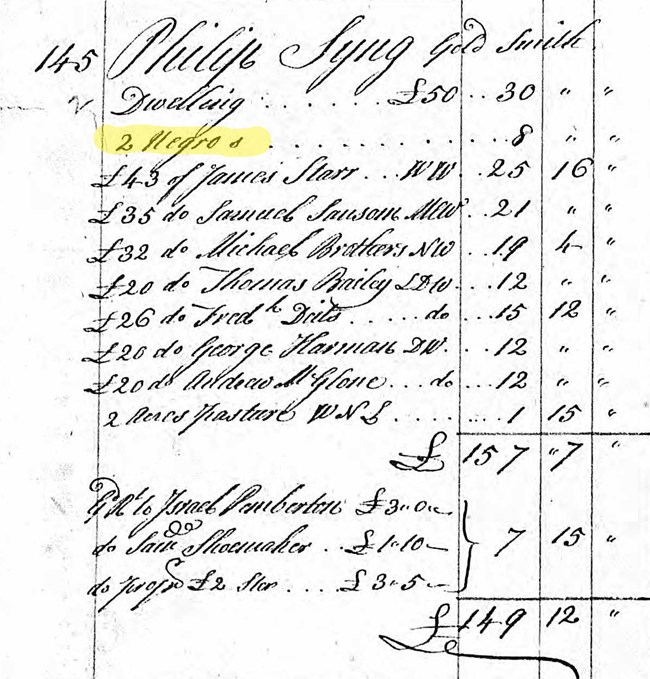 145 Philip Syng Gold Smith
Dwelling . . . . . . £50 . . 30 " "
2 Negros . . . . . . . . . . . 8 " "
£43 of James Starr . . . WW . . 25 16 "
£35 do Samuel Sansom MW . . 21 " "
£32 do Michael Brothers NW . . 19 4 "
£20 do Thomas Bailey LDW . . . 12 " "
£26 do Fredk Deits . . . . . do . . . 15 12 "
£20 do George Harman DW . . . 12 " "
£20 do Andrew McGlone . . . do . . . 12 " "
2 Acres Pasture W N L . . . . . . . . 1 15 "
£ 157 "7 "
Gd Rt to Israel Pemberton £3 " 0 " —
do Saml Shoemaker . . £1 " 10 — } 7 15 "
do propr £2 Ster . . . . £3 " 5 " —
£ 149 12 "